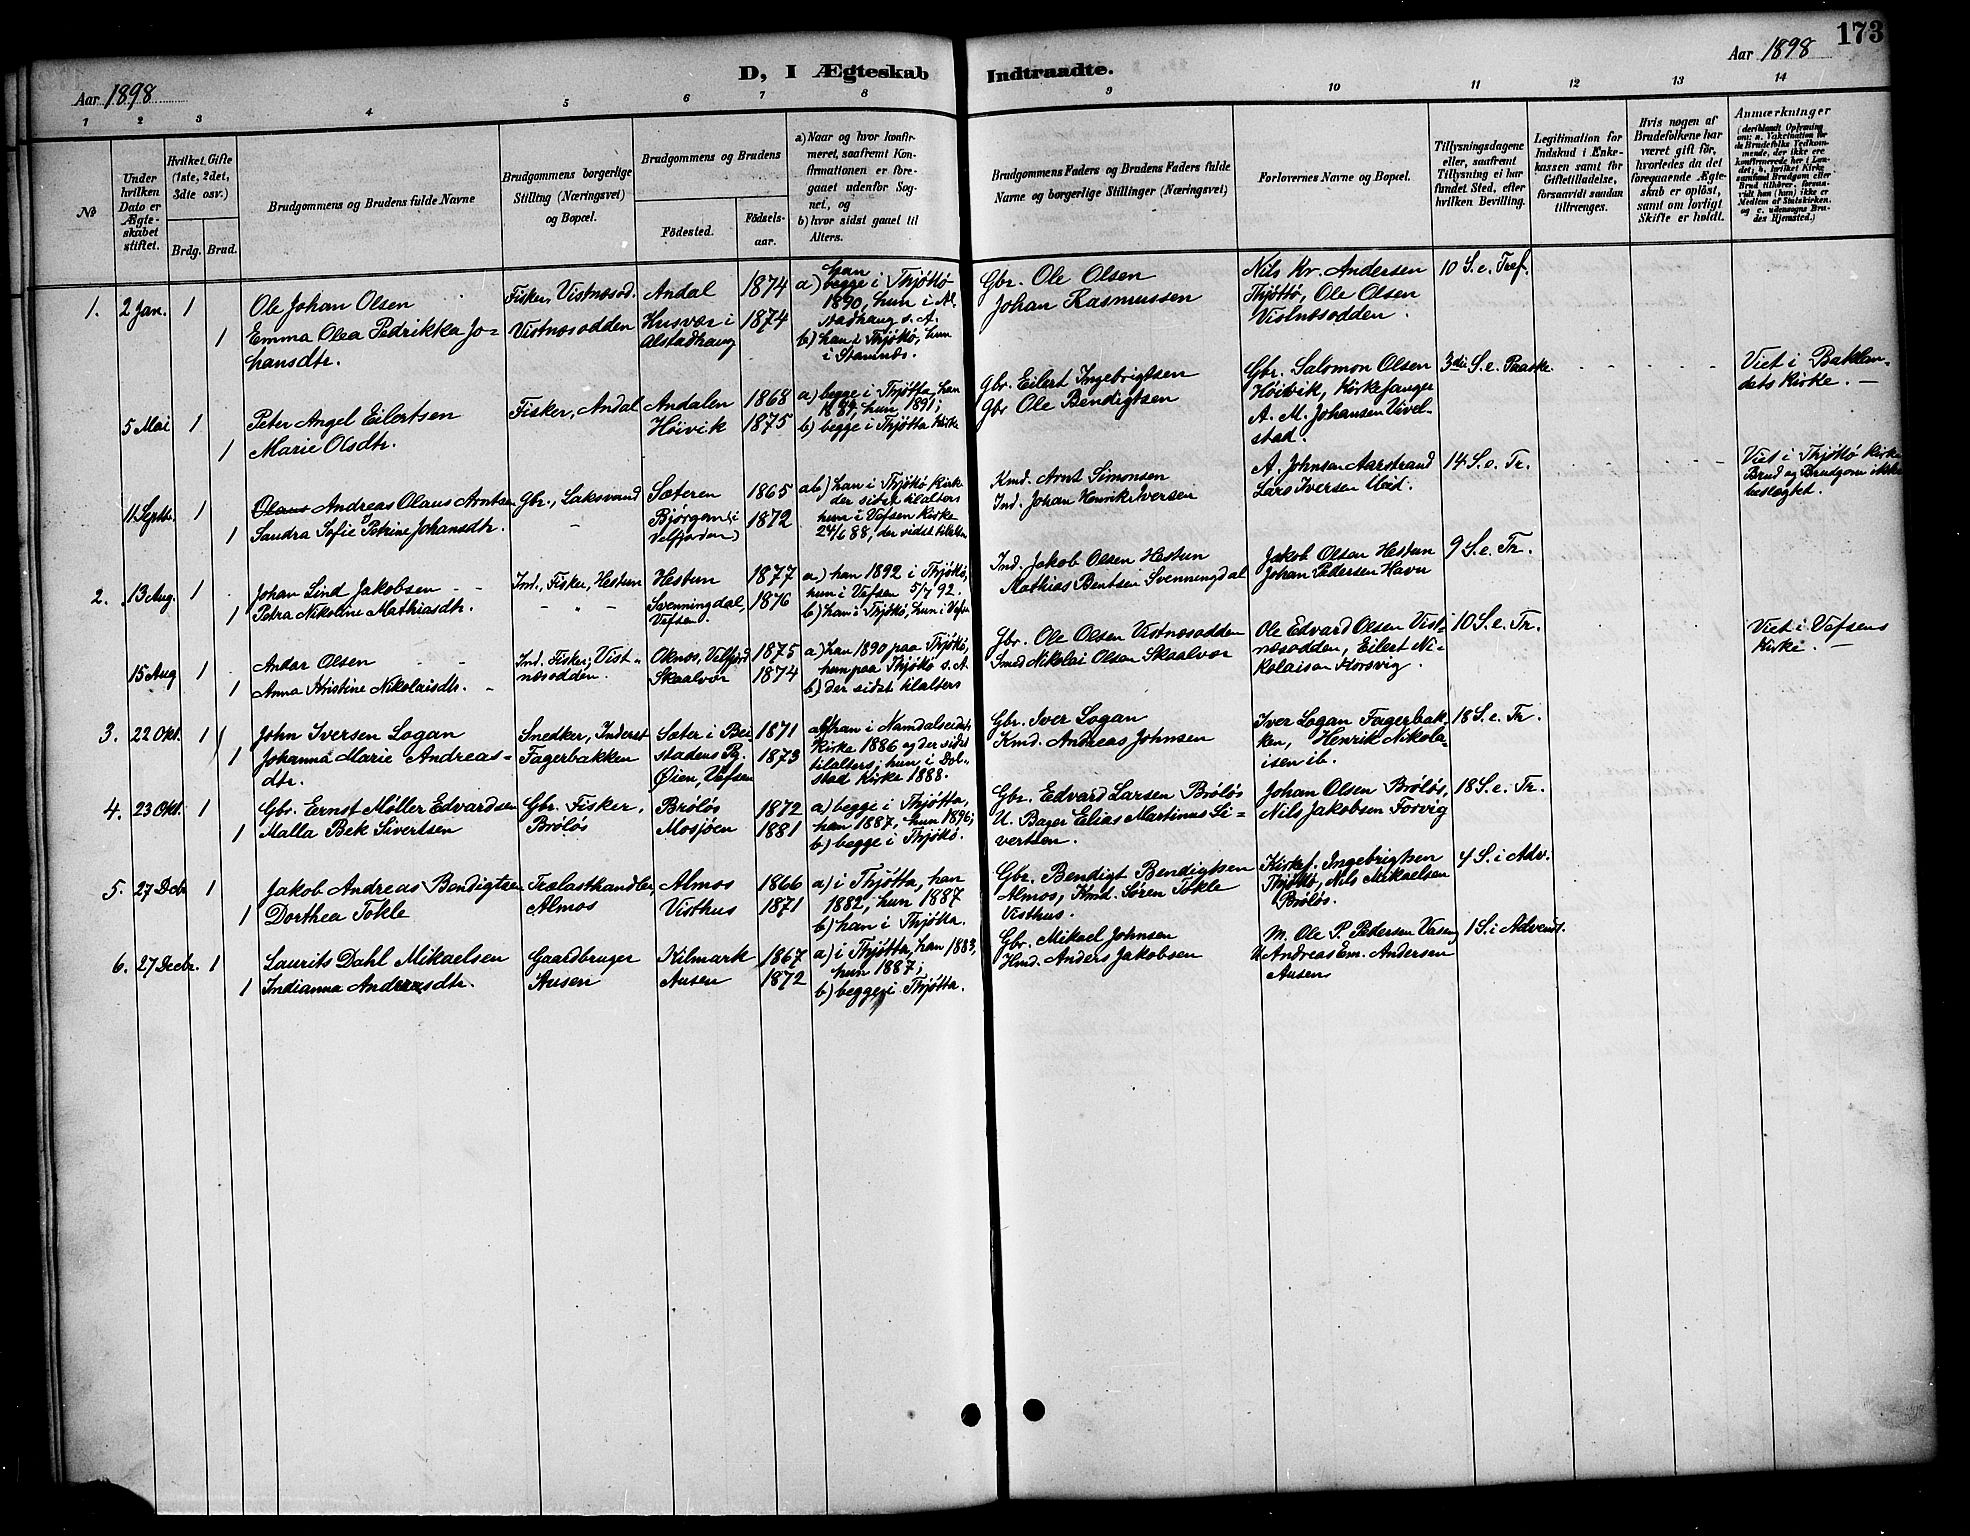 173
Aar 1898
D, I Ægteskab Indtraadte.
Aar 1898
1 2 3 4 5 6 7 8 9 10 11 12 13 14
No
Under hvilken Dato er Ægteskabet stiftet.
Hvilket Gifte (1ste, 2det, 3die osv.)
Brdg. Brud.
Brudgommens og Brudens fulde Navne
Brudgommens borgerlige Stilling (Næringsvei) og Bopæl.
Brudgommens og Brudens
Födested.
Födselsaar.
a) Naar og hvor konfirmeret, saafremt Konfirmationen er foregaaet udenfor Sognet, og
b) hvor sidst gaaet til Alters.
Brudgommens Faders og Brudens Faders fulde Navne og borgerlige Stillinger (Næringsvei)
Forlovernes Navne og Bopæl.
Tillysningsdagene eller, saafremt Tillysning ei har fundet Sted, efter hvilken Bevilling.
Legitimation for Indskud i Enkekassen samt for Giftetilladelse, forsaavidt saadan tiltrænges.
Hvis nogen af Brudefolkene har været gift för, hvorledes da det foregaaende Ægteskab er oplöst, samt om lovligt Skifte er holdt.
Anmærkninger
(deriblandt Oplysning om: a. Vakcination for de Brudefolks Vedkommende, der ikke ere konfirmerede her i Landet, b. hvilket Kirkesamfund Brudgom eller Brud tilhörer, forsaavidt han (hun) ikke er Medlem af Statskirken, og c. udensogns Brudes Hjemsted.)
1. 2 Jan. 1 Ole Johan Olsen Fisker, Vistnæsod. Andal 1874 a) han begge i Thjøttø 1890, hun i Alstadhaug s. A. Gbr. Ole Olsen Nils Kr. Andersen Thjøttø, Ole Olsen Vistnæsodden. 10 S. e. Tref.
1 Emma Olea Pedrikka Johansdtr. Vistnæsodden Husvær i Alstadhaug 1874 b) han i Thjøttø, hun i Stamnes. Johan Rasmussen
5 Mai 1 Peter Angel Eilertsen Fisker, Andal Andalen 1868 a) begge i Thjøtta, han 1884, hun 1891; Gbr. Eilert Ingebrigtsen Gbr. Salomon Olsen Höivik, Kirkesanger A. M. Johansen Vivelstad. 3die S. e. Paaske Viet i Baklandets Kirke. —
1 Marie Olsdtr. Höivik 1875 b) begge i Thjøtta Kirke Gbr Ole Bendigtsen
11 Septbr. 1 Olaus Andreas Olaus Arntsen Gbr., Laksvand Sæteren 1865 ab) han i Thjøttø Kirke der sidst tilalters Kmd. Arnt Simonsen A. Johnsen Aarstrand 14 S. e. Tr. Viet i Thjøttø Kirke Brud og Brudgom ikke beslægtet.
1 Sandra Sofie Petrine Johansdtr. Bjørgan (i Velfjorden) 1872 hun i Vefsen Kirke 24/6 88, der sidst tilalters Ind. Johan Henrik Iversen Lars Iversen Ueid.
2. 13 Aug. 1 Johan Lind Jakobsen Ind. Fisker, Hestun Hestun 1877 a) han 1892 i Thjøttø, hun i Vefsen 5/7 92. Ind. Jakob Olsen Hestun Jakob Olsen Hestun 9 S. e. Tr.
1 Petra Nikoline Mathiasdtr. Svenningdal, Vefsen. 1876 b) han i Thjøttø, hun i Vefsn Mathias Bentsen Svenningdal Johan Pedersen Havn
15 Aug 1 Andor Olsen Ind. Fisker, Vistnæsodden. Oknæs, Velfjord 1875 a) han 1890 paa Thjøttø, hun paa Thjøttø s. A Gbr. Ole Olsen Vistnæsodden Ole Edvard Olsen Vistnæsodden, Eilert Nikolaisen Horsvig. 10 S. e. Tr. Viet i Vefsens Kirke. —
1 Anna Kristine Nikolaisdtr. Skaalvær 1874 b) der sidst tilalters Smed Nikolai Olsen Skaalvær
3. 22 Okt. 1 John Iversen Logan Snedker, Inderst Fagerbakken Sæter i Beistadens Pg. 1871 ab) han i Namdalseidets Kirke 1886 og der sidst tilalters; hun i Dolstad Kirke 1888. Gbr. Iver Logan Iver Logan Fagerbakken, Henrik Nikolaisen ib. 18 S. e. Tr.
1 Johanna Marie Andreasdtr. Øien, Vefsen 1873 Kmd. Andreas Johnsen
4. 23 Okt. 1 Gbr. Ernst Møller Edvardsen Gbr. Fisker, Brölös Brölös 1872 a) begge i Thjøtta, han 1887, hun 1896; Gbr. Edvard Larsen Brölös Johan Olsen Brölös, 18 S. e. Tr.
1 Malla Bek Sivertsen Mosjøen 1881 b) begge i Thjøttø. U. Bager Elias Martinus Sivertsen. Nils Jakobsen Forvig
5. 27 Dcbr 1 Jakob Andreas Bendigtsen Trælasthandler, Almos Almos 1866 a) i Thjøtta, han 1882, hun 1887 Gbr. Bendigt Bendigtsen Almos, Kmd. Sören Tokle Visthus. Kirkes. Ingebrigtsen Thjøttø, Nils Mikaelsen Brölös. 4 S. i Adv.
1 Dorthea Tokle Visthus 1871 b) han i Thjøtta.
6. 27 Decbr. 1 Laurits Dahl Mikaelsen Gaardbruger Ausen Kilmark 1867 a) i Thjøtta, han 1883, hun 1887; Gbr. Mikael Johnsen M. Ole P. Pedersen Vaseng 1 S. i Advent.
1 Indianna Andersdtr. Ausen 1872 b) begge i Thjøtta. Hmd. Anders Jakobsen U. Andreas Em. Andersen Ausen